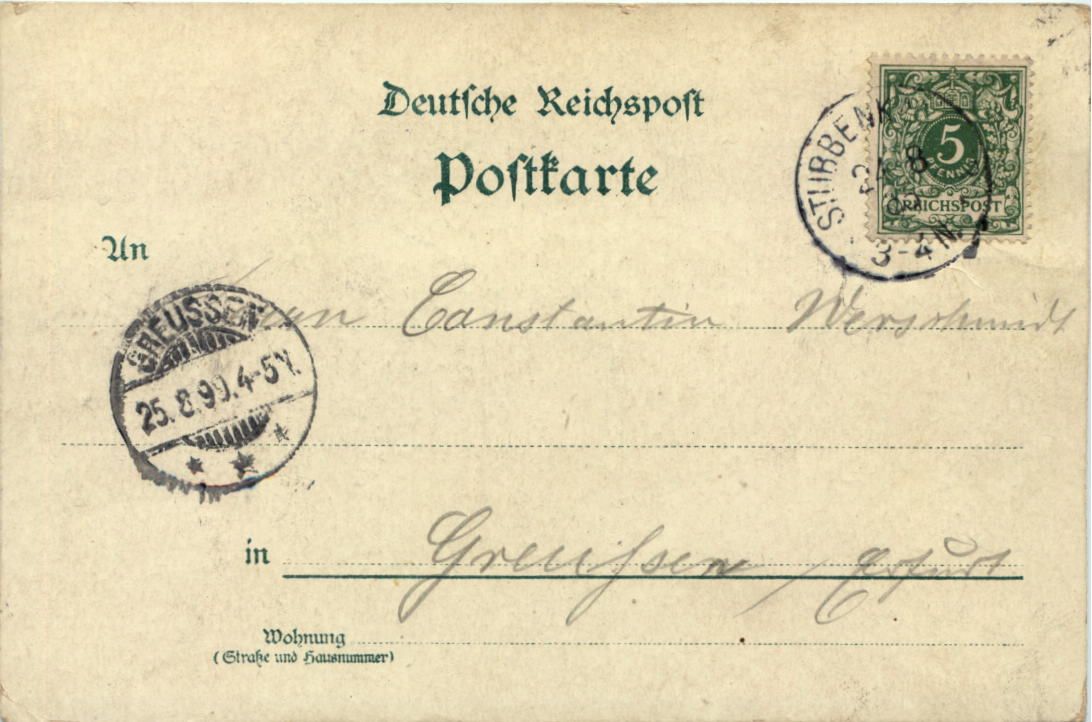 Deutsche Reichspost
Postkarte
5
PFENNIG
REICHSPOST
STUBBENK
24 8
3-4 N.
An
Constantin
GREUSSEN
25.8.99.4-5N.
in Greussen / Erfurt
Wohnung
(Straße und Hausnummer)